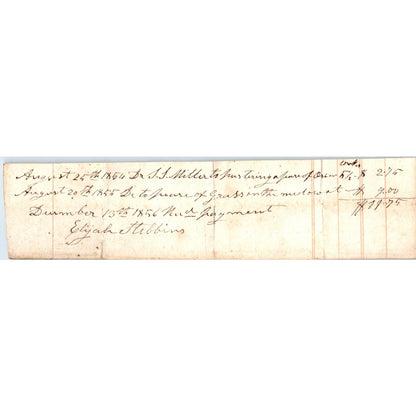 weeks
August 25th 1854 Dr S. S. Miller to pasturing a pare of Oxen 5½ $ 2.75
August 20th 1855 Do to peace of Grass in the medow at $ 9.00
$11.75
Decmber 13th 1856 Recd payment
Elijah Stebbins